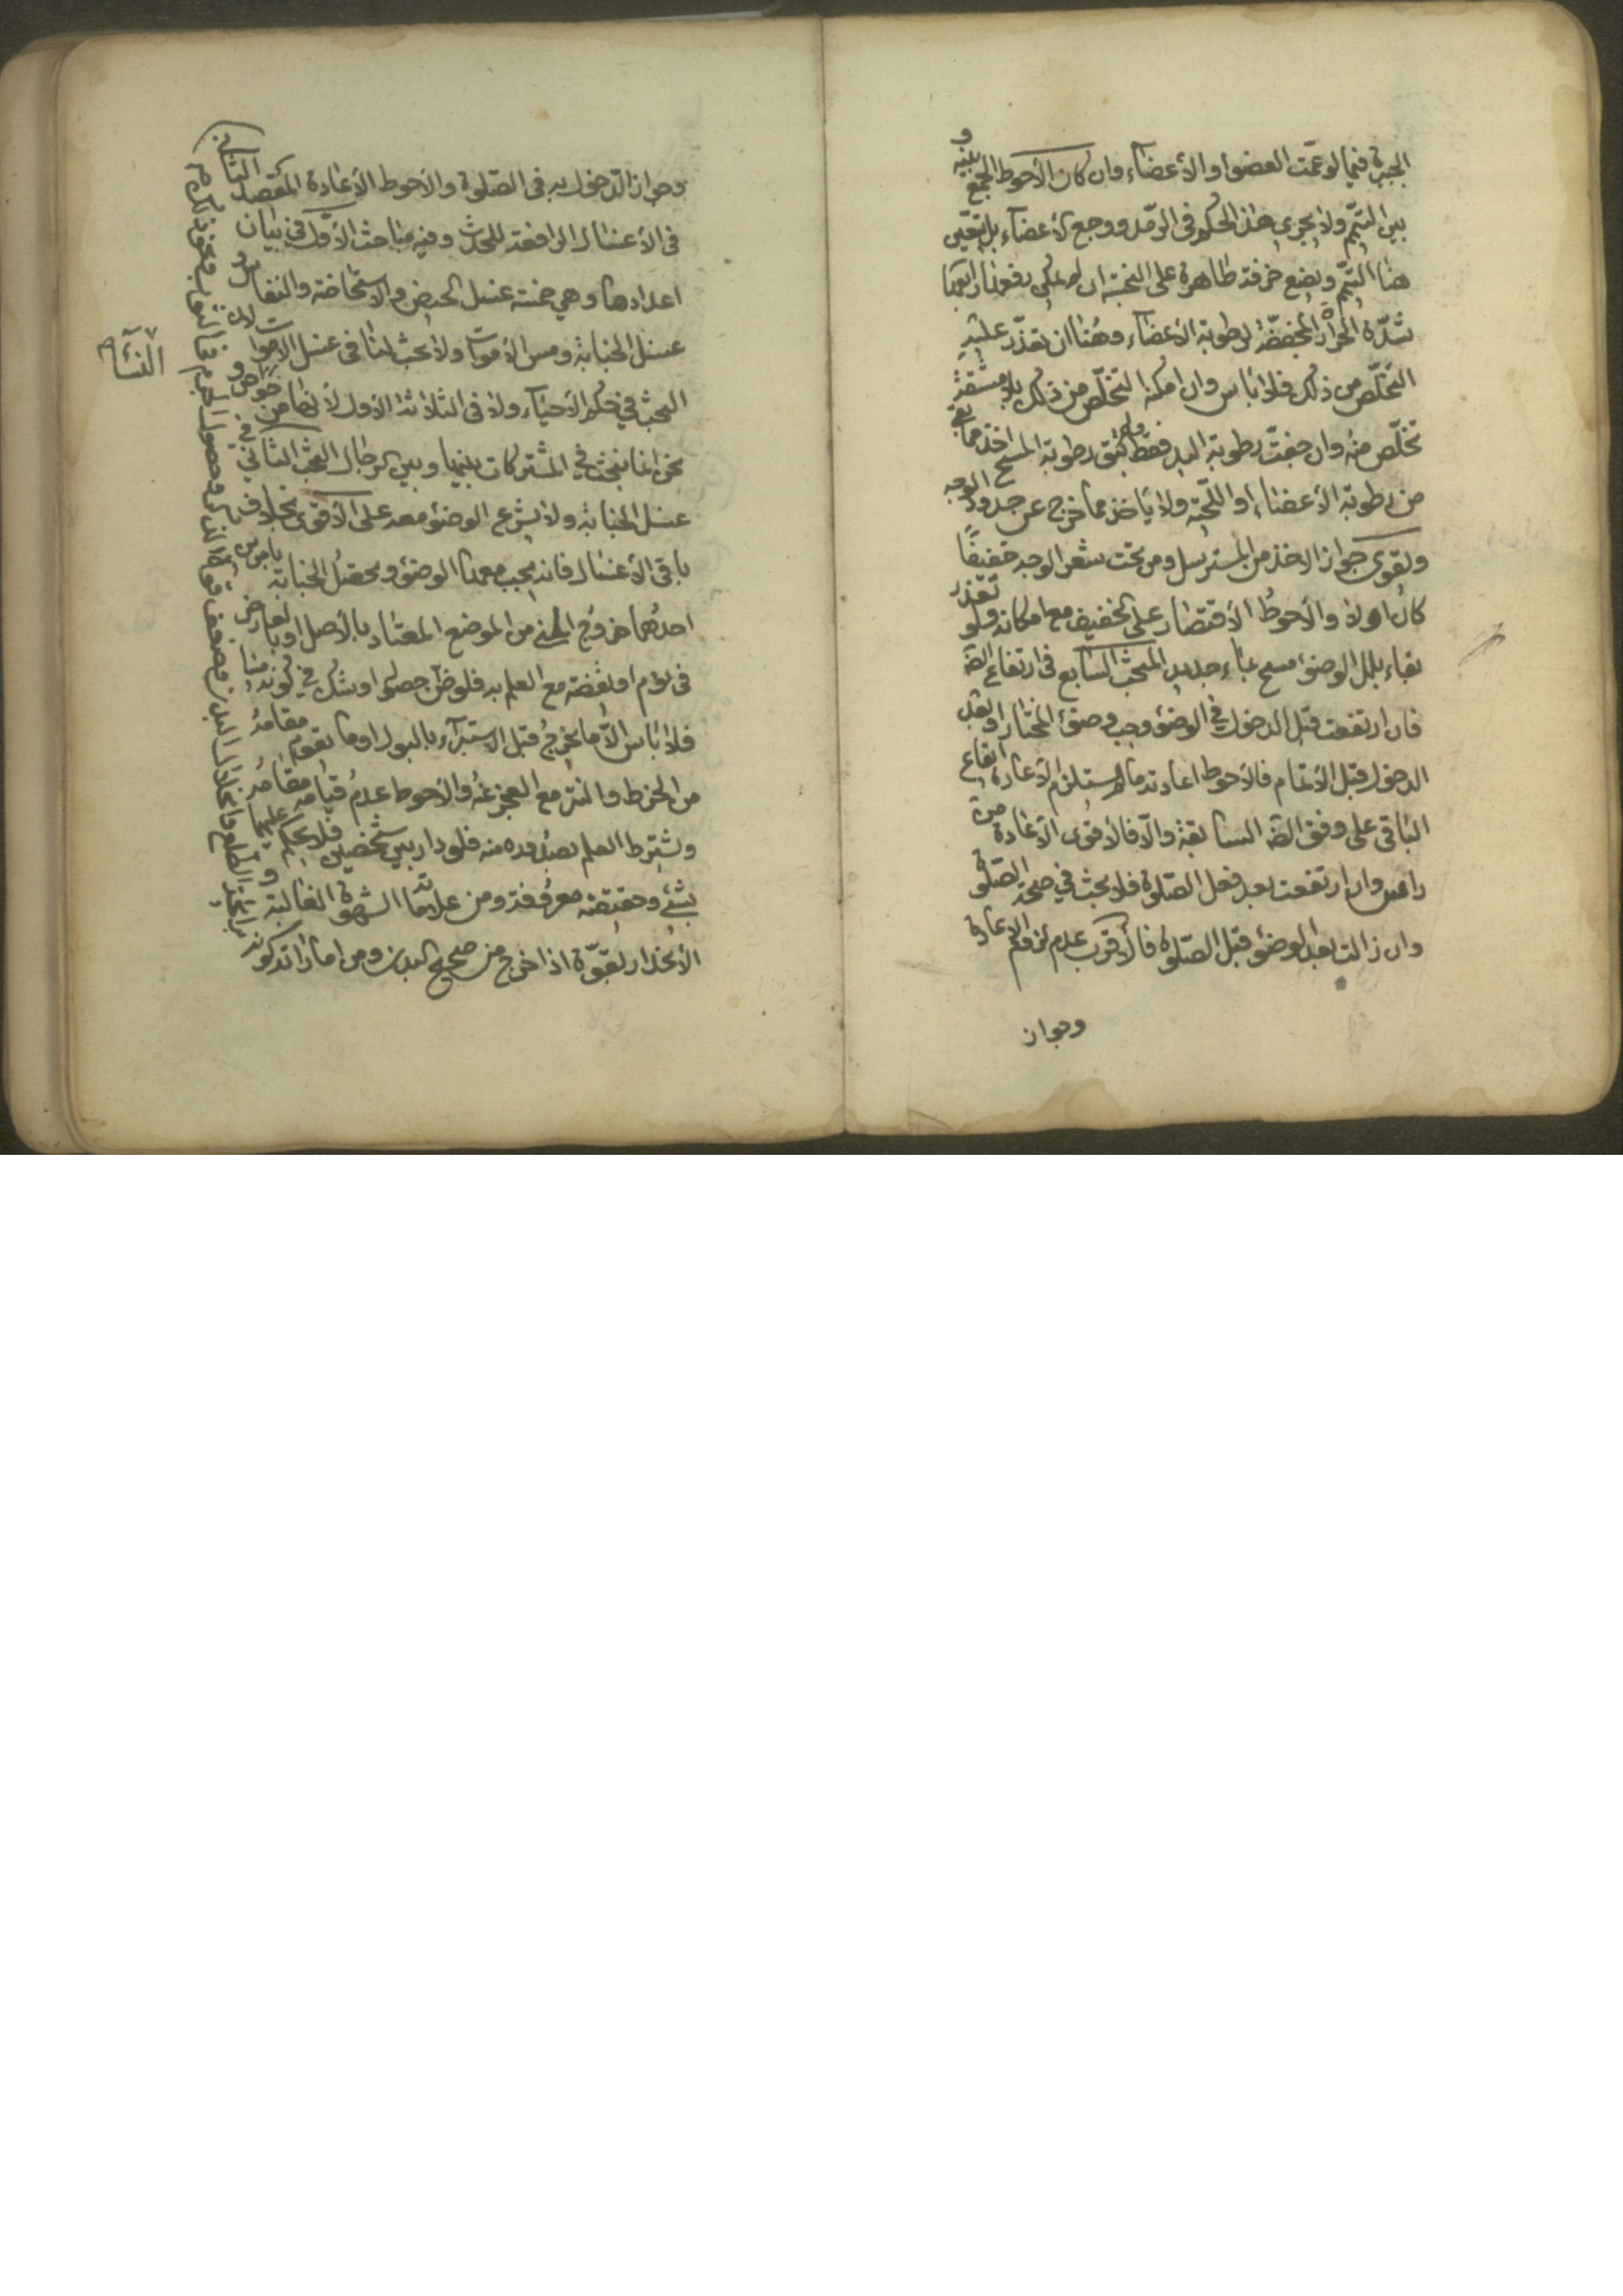 الجبيرة فيما لو عمّت العضو او الأعضاء وان كان الأحوط الجمع بينه و
بين التيمم ولا يجرى هذا الحكم فى الرمد ووجع الأعضاء بل يتعين
هنا التيمم ويضع خرقة طاهرة على النجسة ان لم يمكن رفعها رابعها
شدّة الحرارة المجففة لرطوبة الأعضاء وهنا ان تعذّر عليه
التخلّص من ذلك فلا باس وان امكنه التخلّص من ذلك بلا مشقة
تخلّص منه وان جفّت رطوبة اليد فقط ولم تبق رطوبة المسح اخذ مما بقى
من رطوبة الأعضاء او اللحية ولا ياخذ مما خرج عن حدود الوجه
ويقوى جواز الاخذ من المسترسل ومن تحت شعر الوجه خفيفًا
كان اولا والأحوطُ الأقتصار على الخفيف مع امكانه ولو تعذر
بقاء بلل الوضوء مسح بماء جديد المبحث السابع فى ارتفاع الضرورة
فان ارتفعت قبل الدخول في الوضوء وجب وضوء المختار او بعد
الدخول قبل الأتمام فالأحوط اعادته ما لم يستلزم الأعادة ايقاع
الباقى على وفق الضرورة السابقة والّا فالأقوى الأعادة من
راس وان ارتفعت بعد فعل الصّلوة فلا بحث في صحة الصّلوة
وان زالت بعد الوضوء قبل الصّلوة فالأقرب عدم لزوم الاعادة
وجواز
وجواز الدّخول به فى الصّلوة والأحوط الأعادة المقصد الثانى
فى الأغسال الرافعة للحدث وفيه مباحث الأوّل في بيان
اعدادها وهي خمسة غسل الحيض والاستحاضة والنفاس و
غسل الجنابة ومس الأموات ولا بحث لنا فى غسل الاموات لان
البحث في حكم الأحياء ولا فى الثلاثة الأول لأنها من خواص النساء و
نحن انما نبحث في المشتركات بينها وبين الرجال البحث الثاني في
غسل الجنابة ولا يشرع الوضوء معه على الأقوى بخلاف
باقى الأغسال فانه يجب معها الوضوء ويحصل الجنابة بامرين
احدهما خروج المنى من الموضع المعتاد بالأصل او بالعارض
فى نوم او يقضة مع العلم به فلو ظن حصوله او شك في كونه منيا
فلا باس الّا ما يخرج قبل الاستبراء بالبول او ما يقوم مقامه
من الخرط والنتر مع العجز عنه والأحوط عدم قيامه مقامه
ويشترط العلم بصدوره منه فلو دار بين شخصين فلا يحكم عليهما
بشئ وحقيقته معروفة ومن علائمه الشهوة الغالبة و
الأنحدار بقوّة اذا خرج من صحيح البدن ومن اماراته كونه